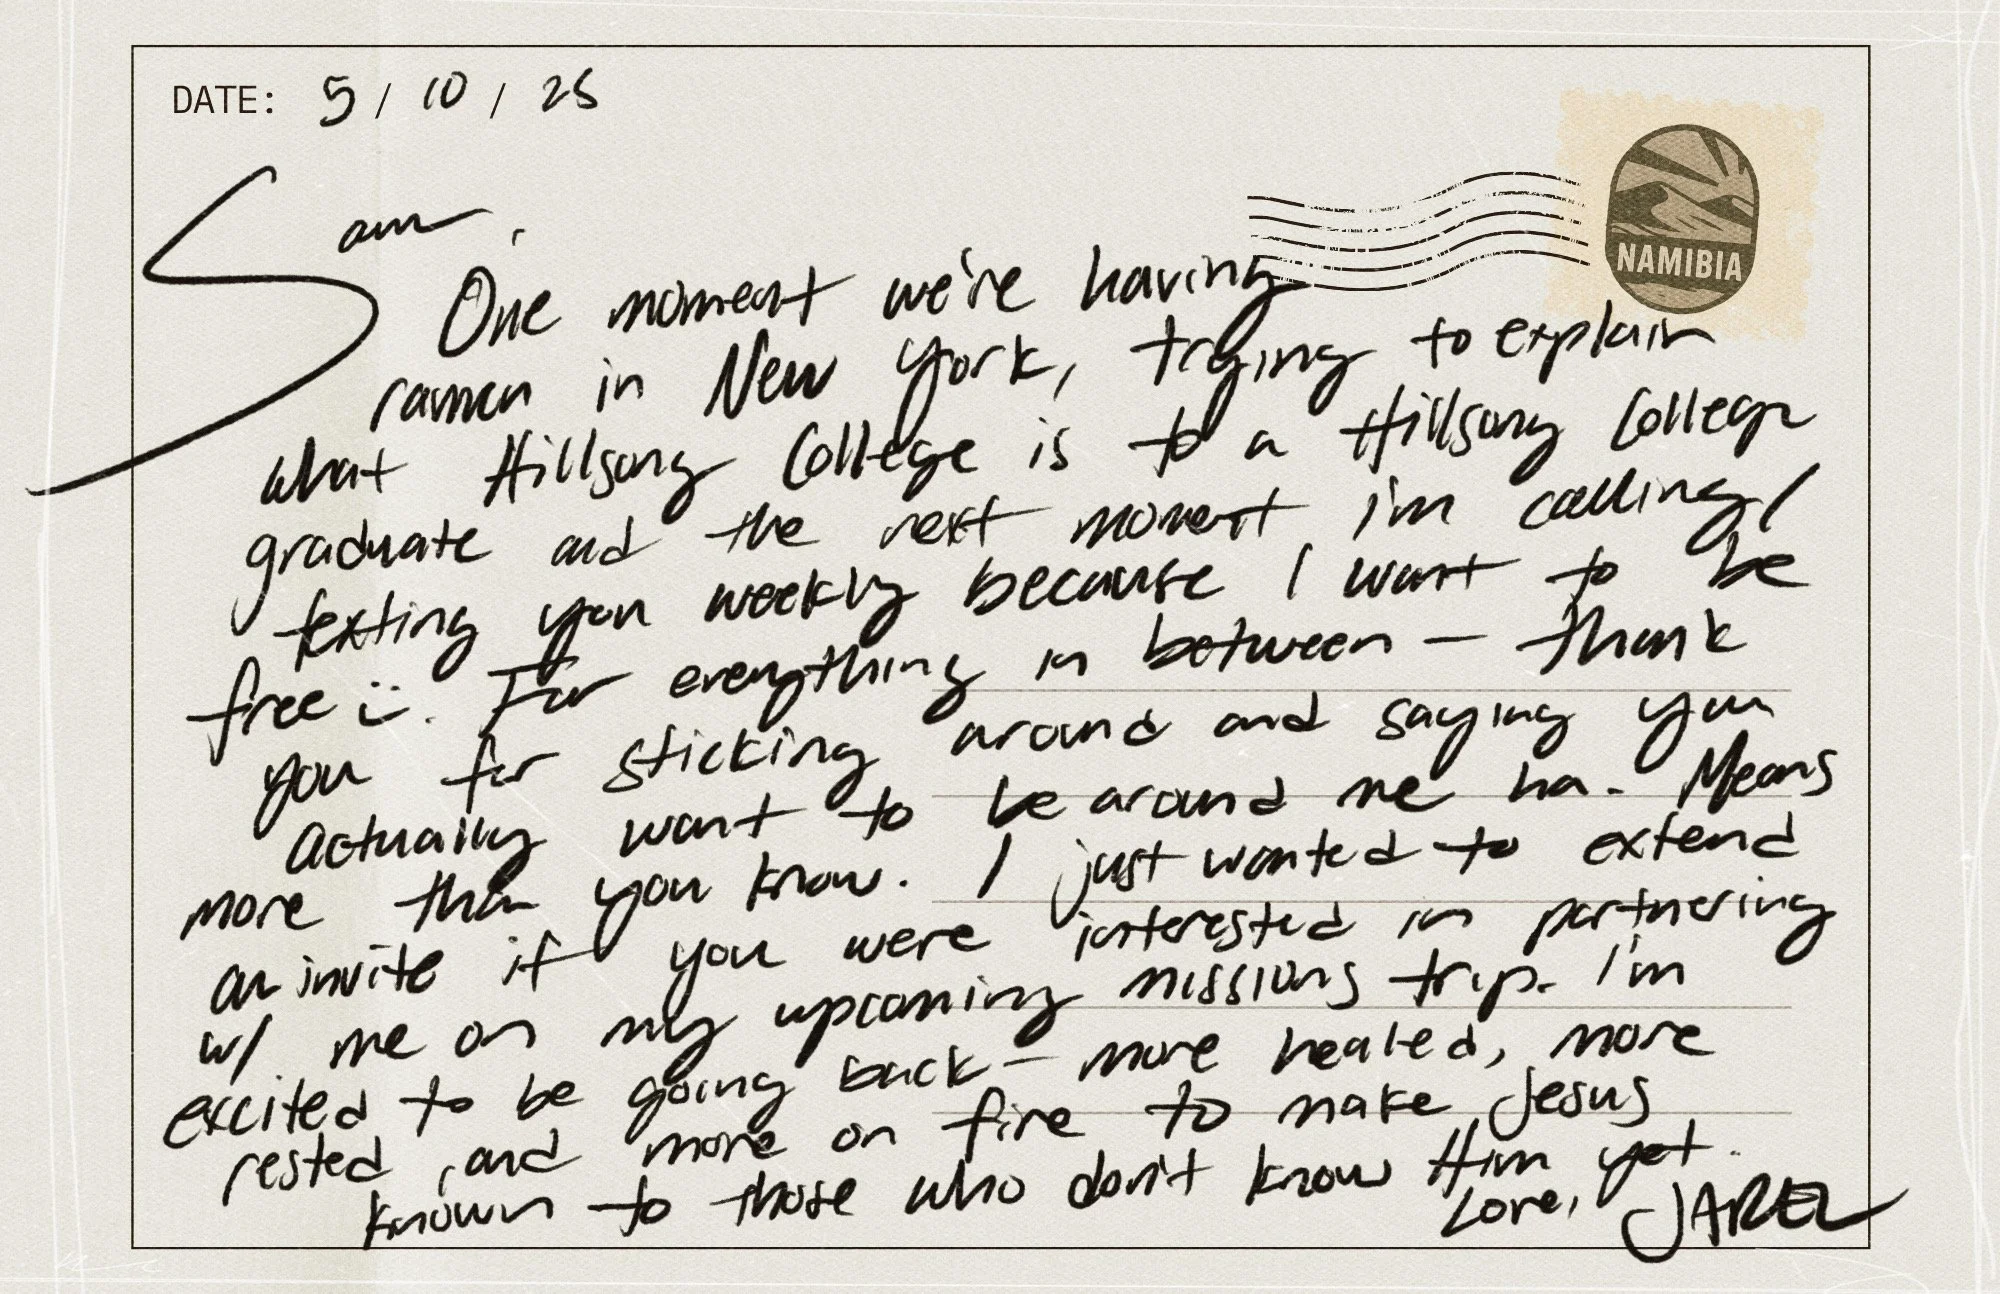 DATE: 5 / 10 / 25
NAMIBIA
Sam,
One moment we're having
ramen in New York, trying to explain
what Hillsong College is to a Hillsong College
graduate and the next moment i'm calling/
texting you weekly because I want to be
free :). For everything in between — thank
you for sticking around and saying you
actually want to be around me ha. Means
more than you know. I just wanted to extend
an invite if you were interested in partnering
w/ me on my upcoming missions trip. I'm
excited to be going back — more healed, more
rested, and more on fire to make Jesus
known to those who don't know Him yet.
Love, JAREL